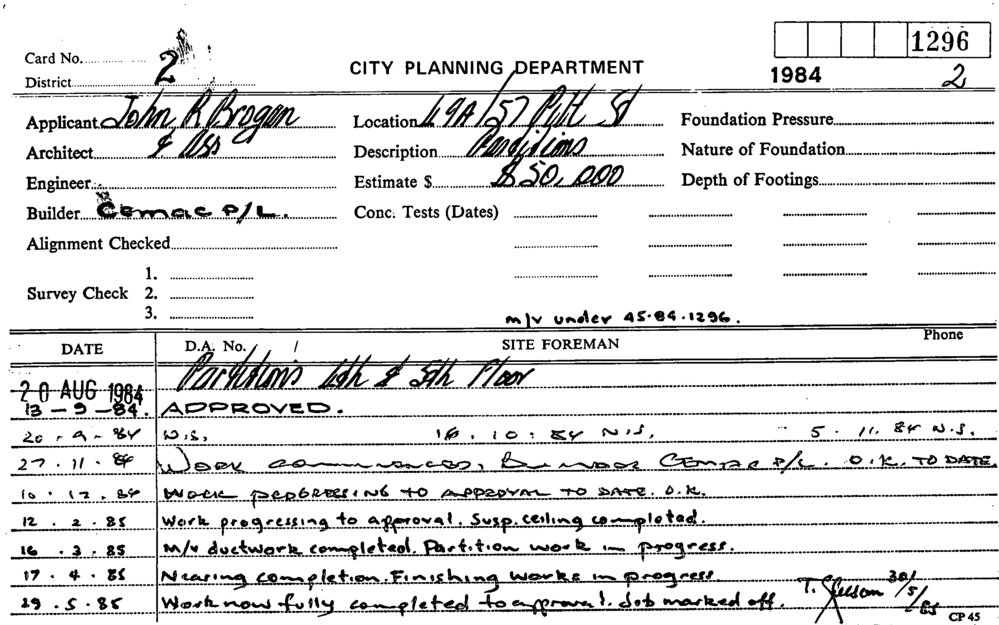 1296
Card No.
2
CITY PLANNING DEPARTMENT
1984
2
District
Applicant John R Brogan
Location 49A/57 Pitt St
Foundation Pressure
Architect & Ass
Description Partitions
Nature of Foundation
Engineer
Estimate $ $50,000
Depth of Footings
Builder Cemac P/L.
Conc. Tests (Dates)
Alignment Checked
1.
Survey Check 2.
3.
m/v under 45.84.1296.
DATE D.A. No. / SITE FOREMAN Phone
20 AUG 1984 Partitions 4th & 5th Floor
13-9-84. APPROVED.
20-9-84 N.S. 16.10.84 N.S. 5.11.84 N.S.
27.11.84 WORK COMMENCED, CEMAC P/L. O.K. TO DATE.
10.12.84 WORK PROGRESSING TO APPROVAL TO DATE. O.K.
12.2.85 Work progressing to approval. Susp. ceiling completed.
16.3.85 M/v ductwork completed. Partition work in progress.
17.4.85 Nearing completion. Finishing works in progress
29.5.85 Work now fully completed to approval. Job marked off. T. 30/5/85
CP 45